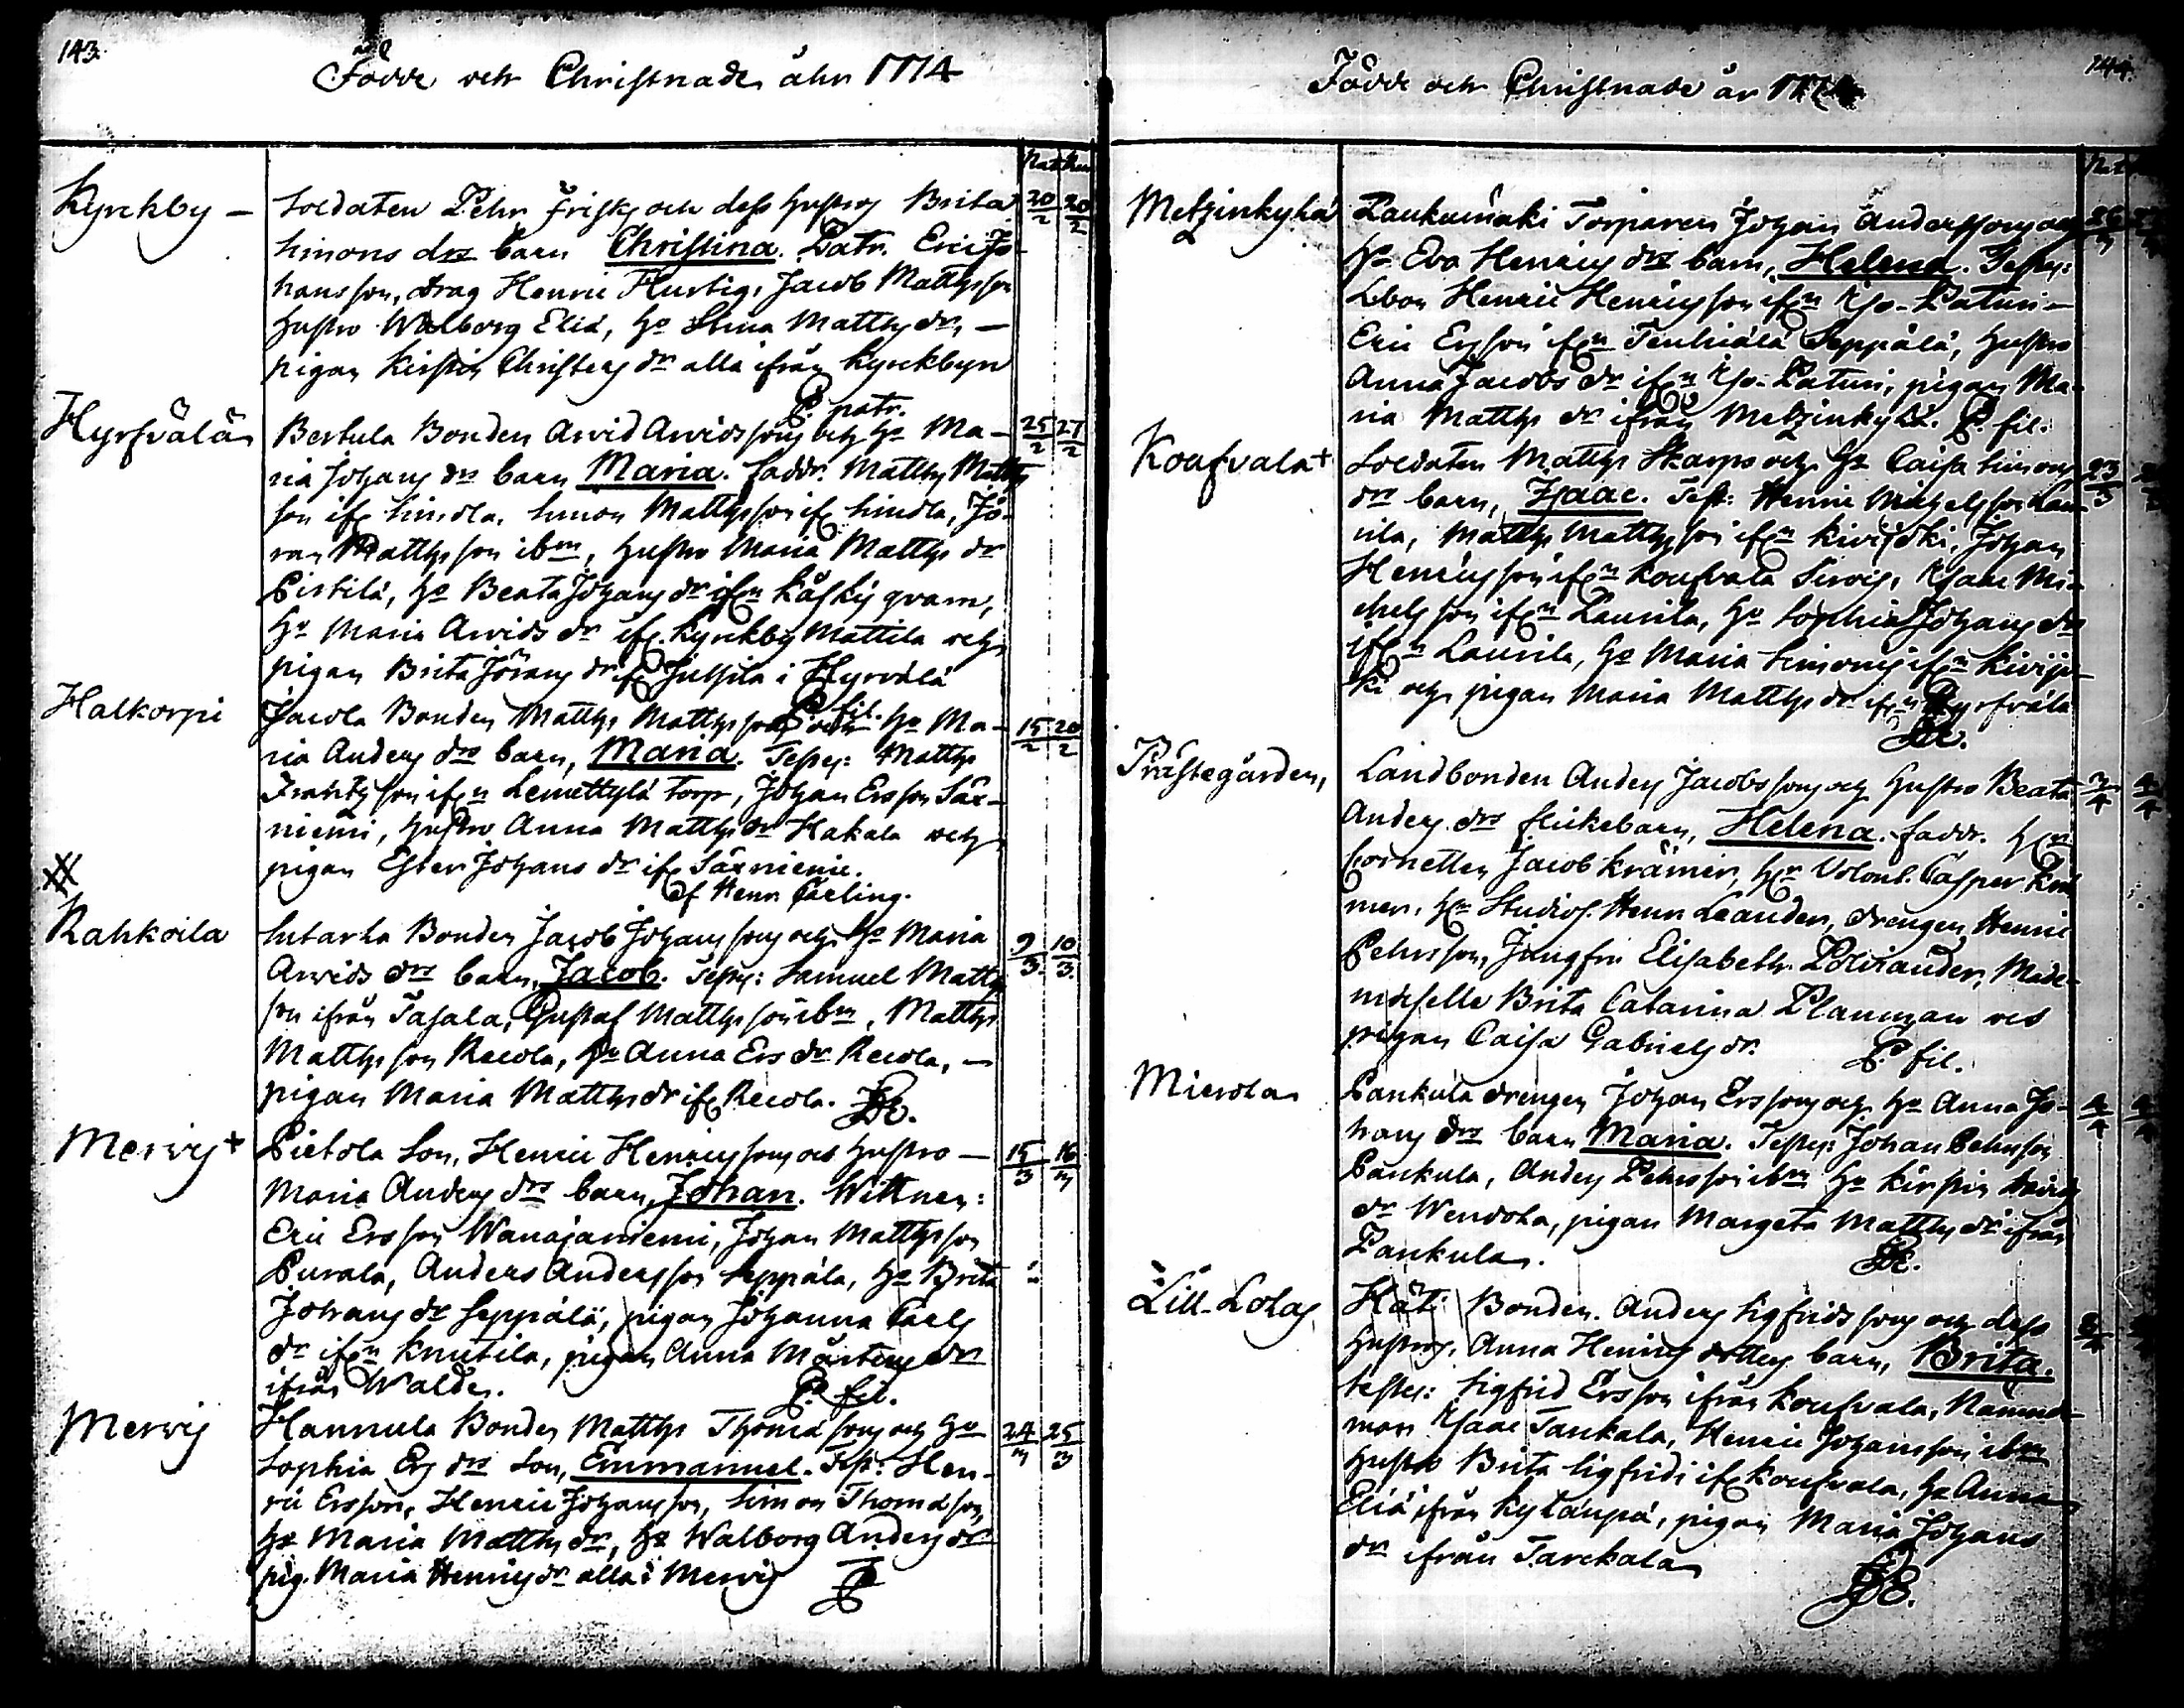 143.
Födde och Christnade åhr 1774
Nat. Ren.
Kyrckby –
Soldaten Pehr Frisks och dess hustros Brita 20/2 20/2
Simons drs barn Christina. Patr. Eric Jo-
hansson, drag Henric Hurtig, Jacob Mattsson
hustro Walborg Eliæ, ho Stina Matths dr, –
pigan Kirstin Christers dr alla ifrån Kyrckbyn
P. patr.
Hyrfvälä
Bertula Bonden Arvid Arvidssons och ho Ma- 25/2 27/2
ria Johans drs barn Maria. faddr. Matths Matths
son ifr Simola, Simon Mattsson ifr Simola, Jö-
ran Matthsson ibm, hustro Maria Matths dr
Pirtilä, ho Beata Johans dr ifrn Käský qvarn,
ho Maria Arvids dr ifr. Kyrckby Mattila och
pigan Brita Jörans dr ifr Jussila i Hyrvälä
P. fil.
Halkorpi
Jacola Bonden Matths Matthssons och ho Ma- 15/2 20/2
ria Anders drs barn, Maria. Testes: Matths
Frantsson ifrn Lemettylä torp, Johan Ersson Säx-
niemi, hustro Anna Matths dr Hakala och
pigan Ester Johans dr ifr Säxniemi.
af Henr. Carling.
Rahkoila
Sutarla Bonden Jacob Johanssons och ho Maria 9/3 10/3
Arvids drs barn, Jacob. Testes: Samuel Matths
son ifrån Tasala, Gustaf Matthsson ibm, Matths
Matthsson Recola, ho Anna Ers dr Recola, –
pigan Maria Matths dr ifr Recola.
Mervis +
Pietola Son, Henric Henricssons och hustro – 15/3 16/3
Maria Anders drs barn, Johan. Wittnen:
Eric Ersson Wanajaniemi, Johan Matthsson
Purala, Anders Andersson Seppälä, ho Brita
Johans dr Seppälä, pigan Johanna Carls
dr ifrn Knutila, pigan Anna Mårtens dr
ifrån Walde. P. fil.
Mervis
Hannula Bonden Matths Thomæ sons och ho 24/3 25/3
Sophia Ers drs Son, Emmanuel. Test: Hen-
ric Ersson, Henric Johansson, Simon Thomæson,
ho Maria Matths dr, ho Walborg Anders dr
pig. Maria Henrics dr alla i Mervis
144.
Födde och Christnade år
Nat.
Metzinkylä
Laukamäki Torparen Johan Anderssons och 26/3
ho Eva Henrics drs barn, Helena. Testes:
Lbon Henric Henricsson ifrn Iso-Paturi –
Eric Ersson ifrn Tenhiälä Seppälä, hustro
Anna Jacobs dr ifrn Iso-Paturi, pigan Ma-
ria Matths dr ifrån Metzinkylä. P. fil.
Koufvala +
Soldaten Matths Skarps och ho Caisa Simons 23/3
drs barn, Isaac. Test: Henric Michelsson Lau-
rila, Matths Matthsson ifrn Kivijoki, Johan
Henricsson ifrn Koufvala Sirois, Isaac Mi-
chelsson ifrn Laurila, ho Sophia Johans dr
ifrn Laurila, ho Maria Simonis ifrn Kivijo-
ki och pigan Maria Matths dr ifrn Hyrfvälä
Prästegården,
Landbonden Anders Jacobssons och hustro Beata 3/4 4/4
Anders drs flickebarn, Helena. faddr. Hr
Cornetten Jacob Krämer, Hr Volont. Casper Krä
mer, Hr Studios. Henr Leander, drengen Henric
Pehrsson, Jungfru Elisabeth Polviander, Made-
moiselle Brita Catarina Planman och
pigan Caisa Gabriels dr. P. fil.
Mierola
Pankula drengen Johan Erssons och ho Anna Jo- 4/4 4/4
hans drs barn Maria. Testes: Johan Pehrsson
Pankula, Anders Pehrsson ibm ho Kirstin Davids
dr Wendola, pigan Margeta Matths dr ifrån
Pankula.
Lill-Lolas
Häti Bonden. Anders Sigfridssons och dess
hustros. Anna Henrics dotters barn, Brita.
testes: Sigfrid Ersson ifrån Koufvala, Nämnde-
man Isaac Tankala, Henric Johansson ibm
hustro Brita Sigfridi ifr Koufvala, ho Anna
Eliæ ifrån Kylänpä, pigan Maria Johans
dr ifrån Tarckala